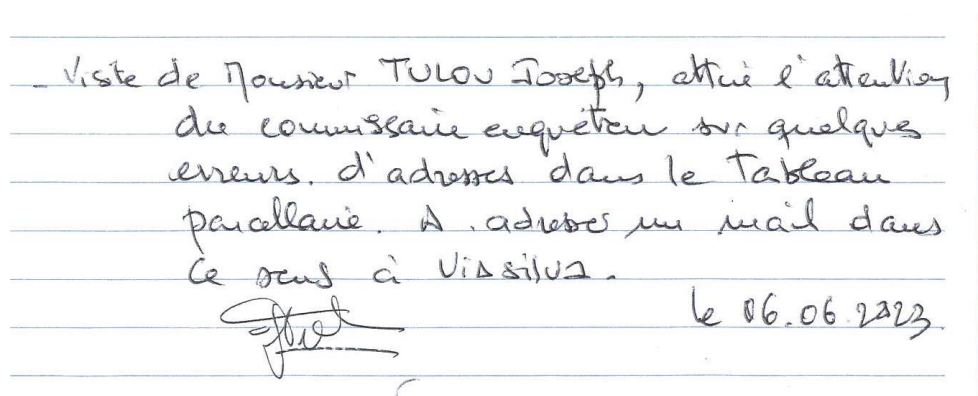 - Visite de Monsieur TULOU Joseph, attire l'attention
du commissaire enquêteur sur quelques
erreurs. d'adresses dans le Tableau
parcellaire. A adressé un mail dans
ce sens à ViaSilva.
le 06.06.2023.